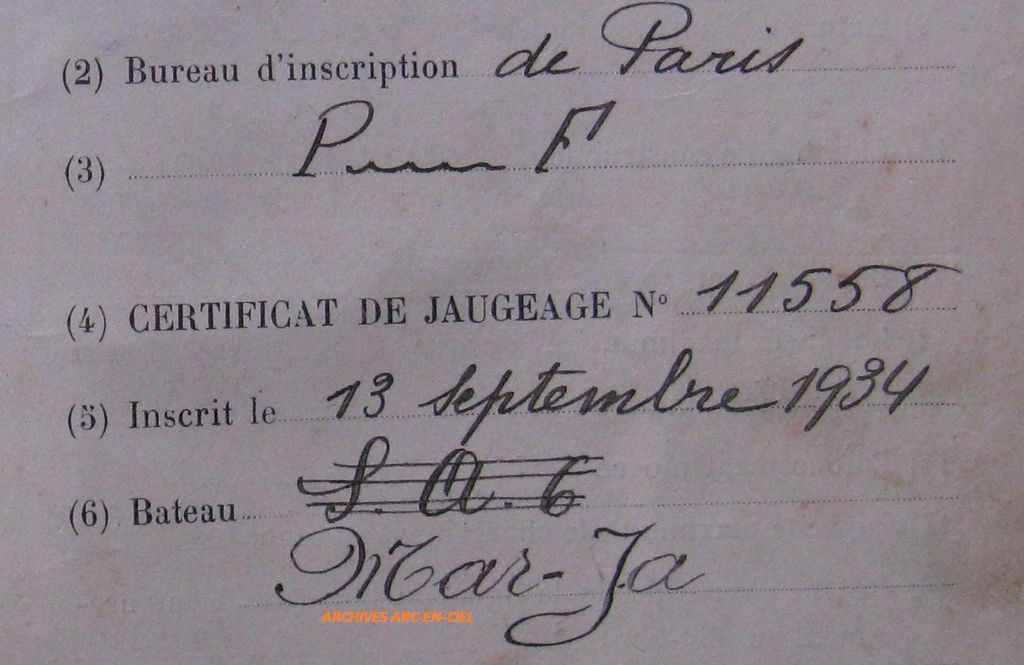 (2) Bureau d'inscription de Paris
(3) P F
(4) CERTIFICAT DE JAUGEAGE No 11558
(5) Inscrit le 13 septembre 1934
(6) Bateau S. A. 6
Mar-Ja
ARCHIVES ARC-EN-CIEL